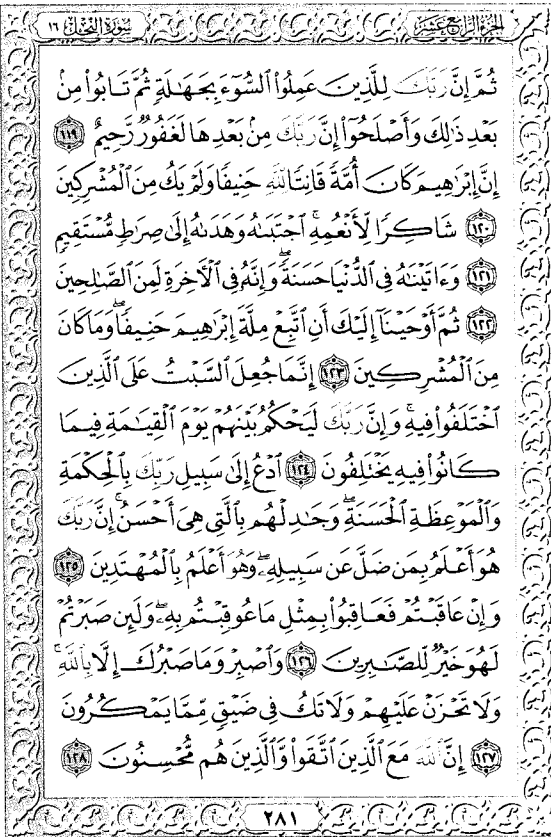 سورة النحل ١٦
الجزء الرابع عشر
ثُمَّ إِنَّ رَبَّكَ لِلَّذِينَ عَمِلُوا۟ ٱلسُّوٓءَ بِجَهَٰلَةٍ ثُمَّ تَابُوا۟ مِنۢ
بَعْدِ ذَٰلِكَ وَأَصْلَحُوٓا۟ إِنَّ رَبَّكَ مِنۢ بَعْدِهَا لَغَفُورٌ رَّحِيمٌ ١١٩
إِنَّ إِبْرَٰهِيمَ كَانَ أُمَّةً قَانِتًا لِّلَّهِ حَنِيفًا وَلَمْ يَكُ مِنَ ٱلْمُشْرِكِينَ
١٢٠ شَاكِرًا لِّأَنْعُمِهِ ۚ ٱجْتَبَىٰهُ وَهَدَىٰهُ إِلَىٰ صِرَٰطٍ مُّسْتَقِيمٍ
١٢١ وَءَاتَيْنَٰهُ فِى ٱلدُّنْيَا حَسَنَةً ۖ وَإِنَّهُۥ فِى ٱلْءَاخِرَةِ لَمِنَ ٱلصَّٰلِحِينَ
١٢٢ ثُمَّ أَوْحَيْنَآ إِلَيْكَ أَنِ ٱتَّبِعْ مِلَّةَ إِبْرَٰهِيمَ حَنِيفًا ۖ وَمَا كَانَ
مِنَ ٱلْمُشْرِكِينَ ١٢٣ إِنَّمَا جُعِلَ ٱلسَّبْتُ عَلَى ٱلَّذِينَ
ٱخْتَلَفُوا۟ فِيهِ ۚ وَإِنَّ رَبَّكَ لَيَحْكُمُ بَيْنَهُمْ يَوْمَ ٱلْقِيَٰمَةِ فِيمَا
كَانُوا۟ فِيهِ يَخْتَلِفُونَ ١٢٤ ٱدْعُ إِلَىٰ سَبِيلِ رَبِّكَ بِٱلْحِكْمَةِ
وَٱلْمَوْعِظَةِ ٱلْحَسَنَةِ ۖ وَجَٰدِلْهُم بِٱلَّتِى هِىَ أَحْسَنُ ۚ إِنَّ رَبَّكَ
هُوَ أَعْلَمُ بِمَن ضَلَّ عَن سَبِيلِهِۦ ۖ وَهُوَ أَعْلَمُ بِٱلْمُهْتَدِينَ ١٢٥
وَإِنْ عَاقَبْتُمْ فَعَاقِبُوا۟ بِمِثْلِ مَا عُوقِبْتُم بِهِۦ ۖ وَلَئِن صَبَرْتُمْ
لَهُوَ خَيْرٌ لِّلصَّٰبِرِينَ ١٢٦ وَٱصْبِرْ وَمَا صَبْرُكَ إِلَّا بِٱللَّهِ ۚ
وَلَا تَحْزَنْ عَلَيْهِمْ وَلَا تَكُ فِى ضَيْقٍ مِّمَّا يَمْكُرُونَ
١٢٧ إِنَّ ٱللَّهَ مَعَ ٱلَّذِينَ ٱتَّقَوا۟ وَّٱلَّذِينَ هُم مُّحْسِنُونَ ١٢٨
٢٨١